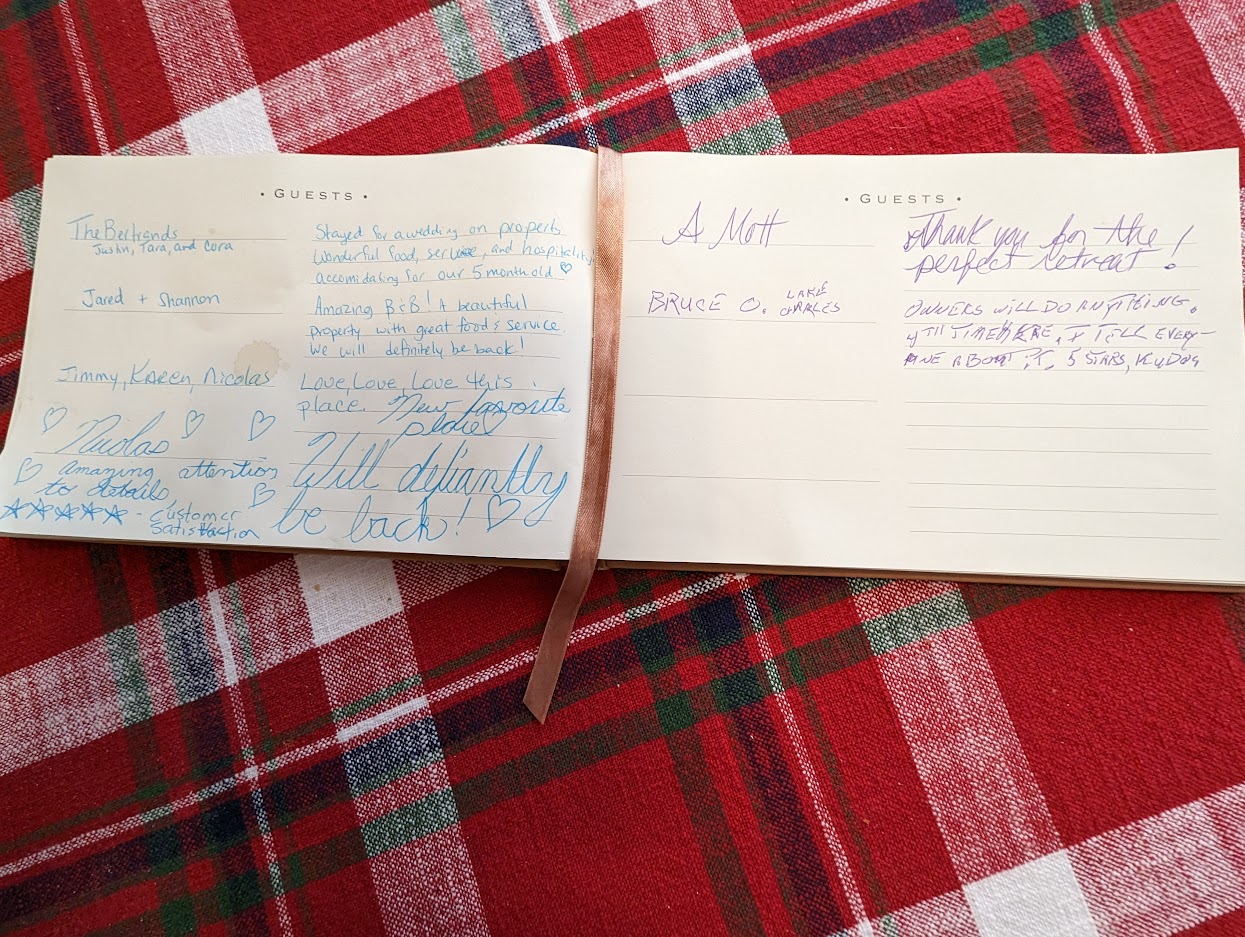 • GUESTS •
The Bertrands
Justin, Tara, and Cora
Stayed for a wedding on property
Wonderful food, service, and hospitality!
accomidating for our 5 month old ♡
Jared + Shannon
Amazing B&B! A beautiful
property with great food & service
We will definitely be back!
Jimmy, Karen, Nicolas
Love, Love, Love this
place. New favorite
place
Nicolas
amazing attention
to details
★★★★★ - customer
satisfaction
Will defiantly
be back! ♡
• GUESTS •
A Mott
Thank you for the
perfect retreat!
BRUCE O. LAKE
CHARLES
OWNERS WILL DO ANYTHING.
4TH TIME HERE, I TELL EVERY-
ONE ABOUT IT. 5 STARS,